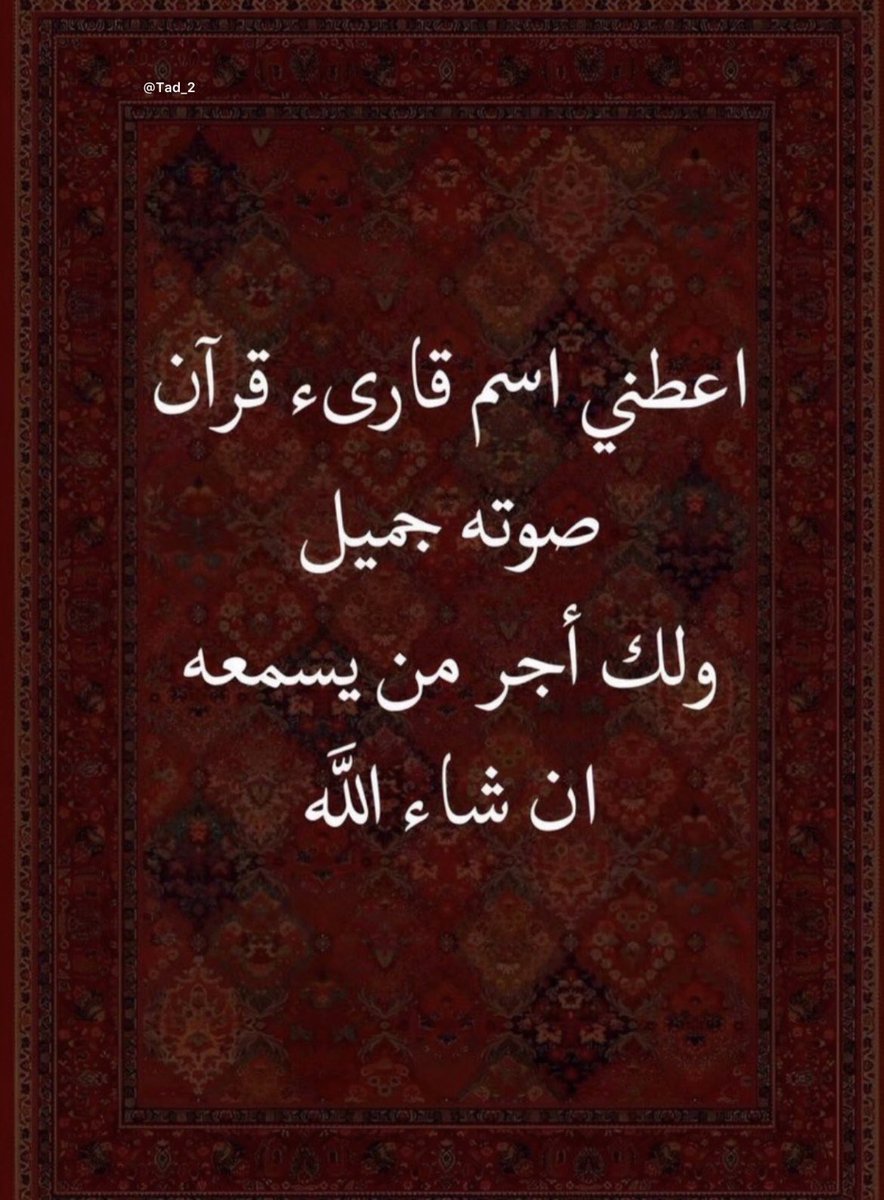 @Tad_2
اعطني اسم قارىء قرآن
صوته جميل
ولك أجر من يسمعه
ان شاء اللَّه